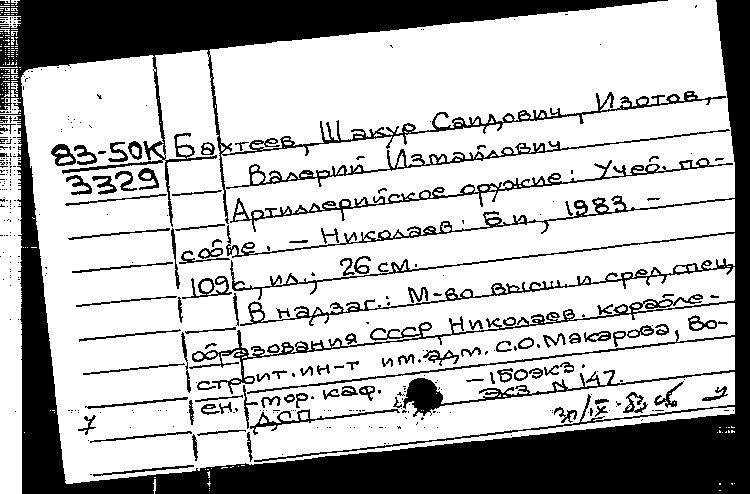 83-50К Бахтеев, Шакур Саидович, Изотов,
3329 Валерий Измайлович
Артиллерийское оружие: Учеб. по-
собие. - Николаев: Б.и., 1983. -
109с., ил.; 26 см.
В надзаг.: М-во высш. и сред. спец.
образования СССР, Николаев. корабле-
строит. ин-т им. адм. С.О. Макарова, Во-
ен.-мор. каф. - 150экз.
ДСП. Экз. N 147.
30/IX-83